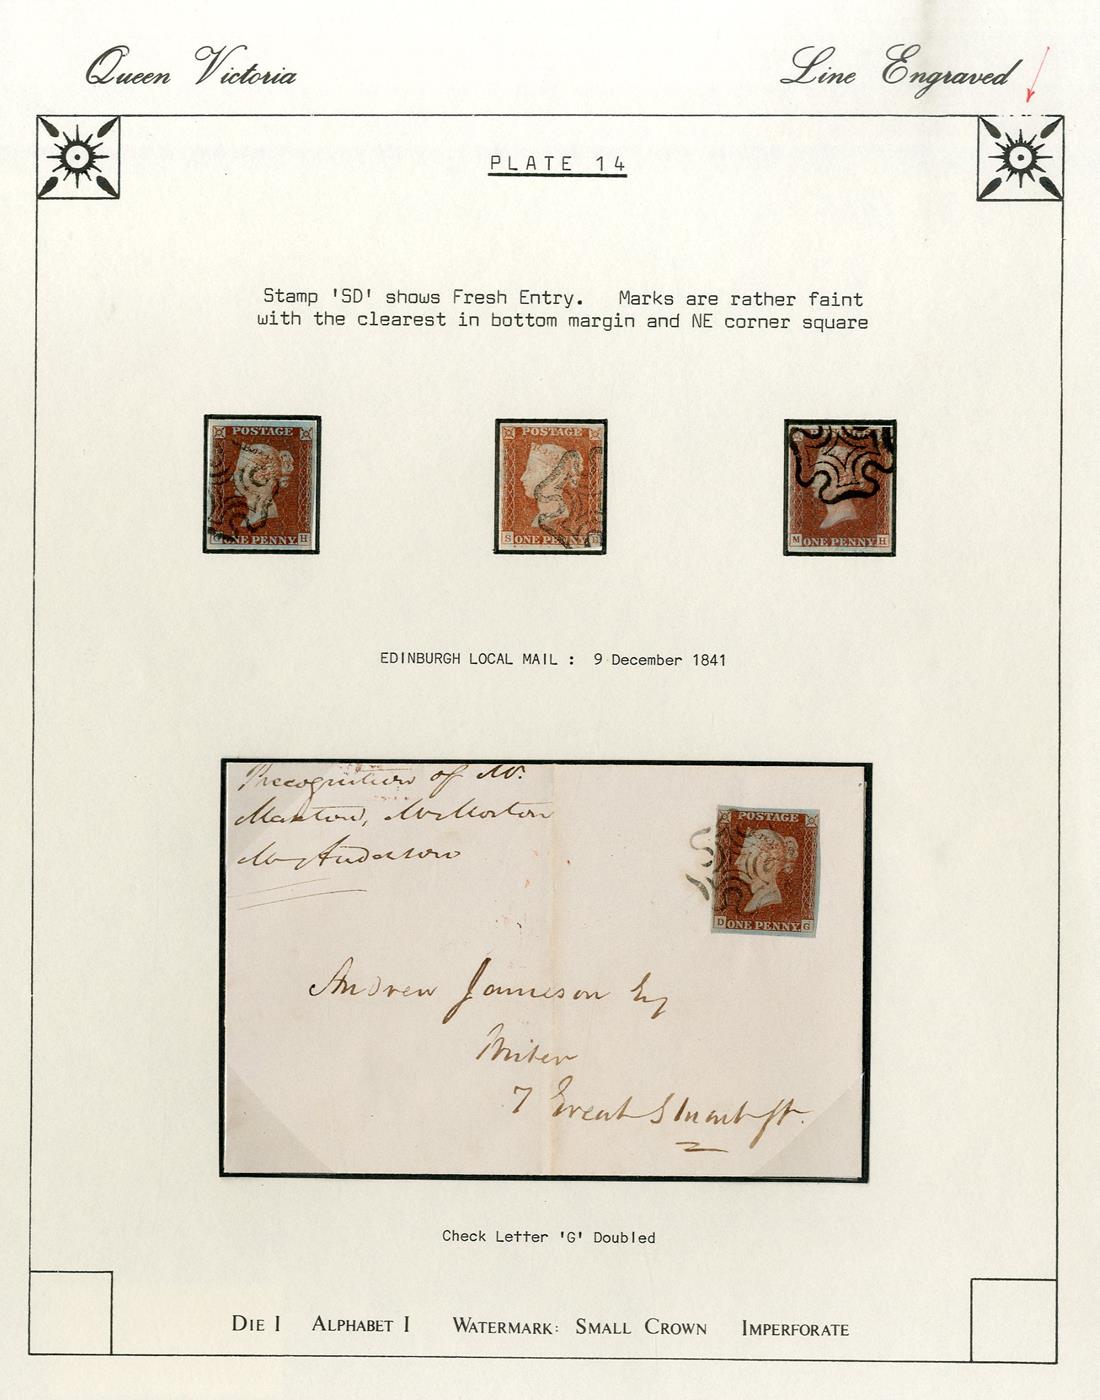 Queen Victoria
Line Engraved
PLATE 14
Stamp 'SD' shows Fresh Entry. Marks are rather faint
with the clearest in bottom margin and NE corner square
POSTAGE
ONE PENNY
H
POSTAGE
S ONE PENNY
M ONE PENNY H
EDINBURGH LOCAL MAIL : 9 December 1841
Precognition of Mr.
Manton, Mr Morton
Anderson
POSTAGE
D ONE PENNY G
Andrew Jameson Esq
Writer
7 Great Stuart St.
Check Letter 'G' Doubled
DIE I ALPHABET I WATERMARK: SMALL CROWN IMPERFORATE